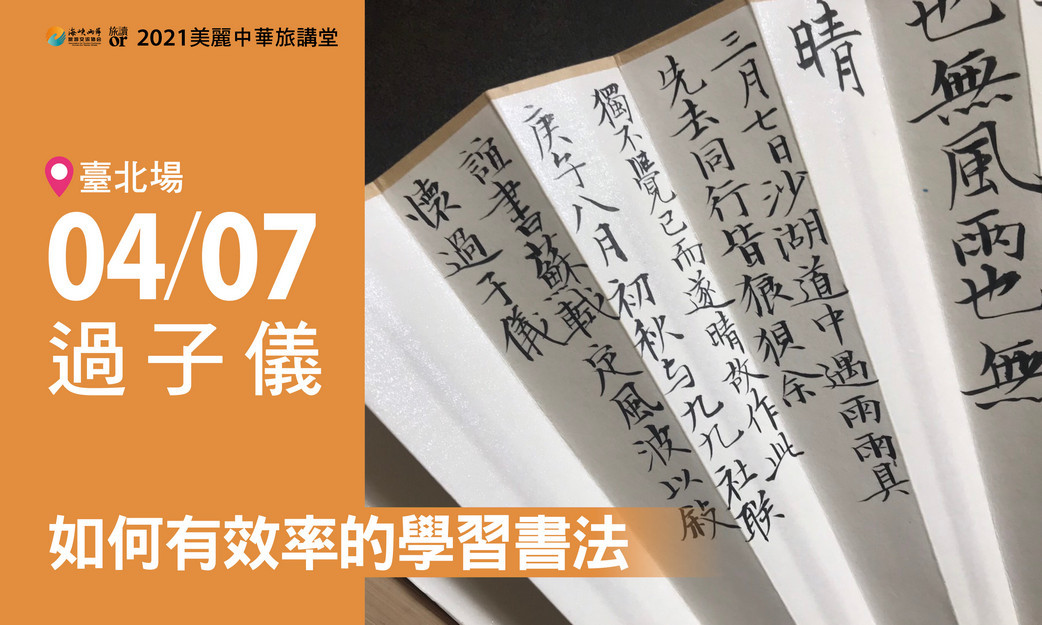 海峽兩岸
旅遊交流協會
旅讀
or
2021美麗中華旅講堂
臺北場
04/07
過子儀
如何有效率的學習書法
也無風雨也無
晴
三月七日沙湖道中遇雨雨具
先去同行皆狼狽余
獨不覺已而遂晴故作此
庚午八月初秋与九九社联
誼書蘇軾定風波以敍
懷過子儀